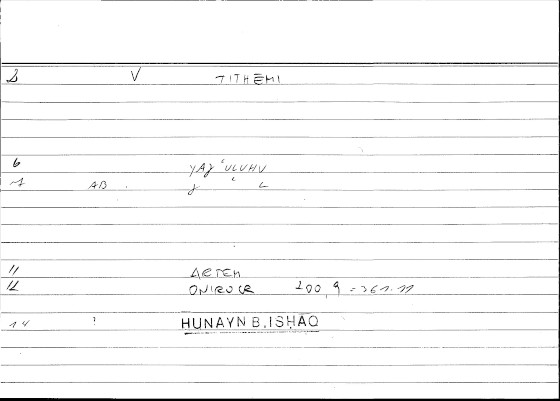 2 V TITHEMI
6 YAJ'ULUHU
7 AB J ' L
11 ARTEM
12 ONIROCR 200, 9 = 261.11
14 ? HUNAYN B. ISHAQ